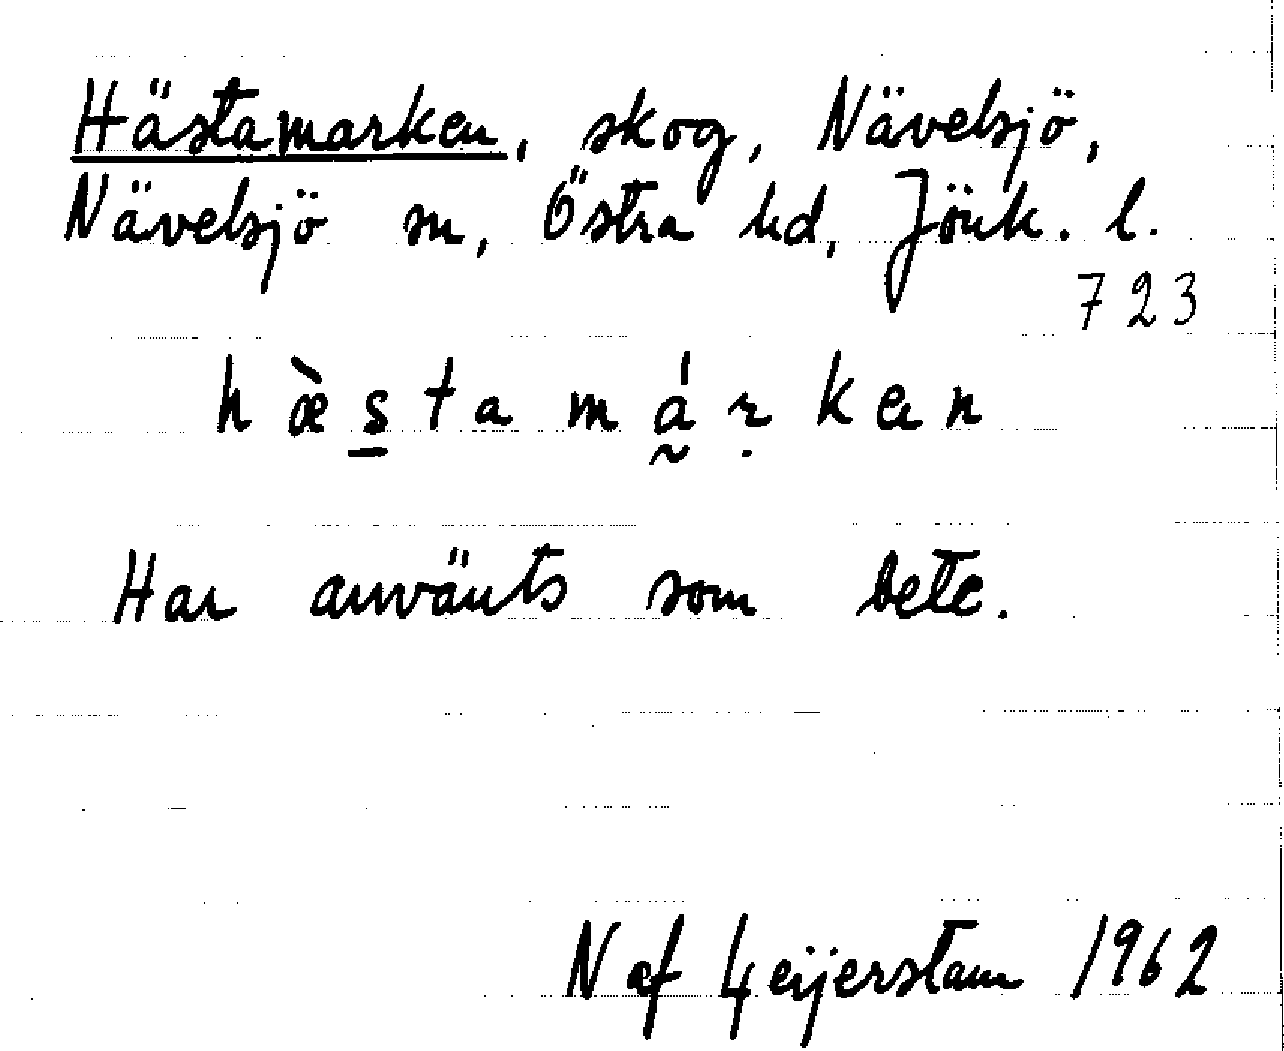 Hästamarken, skog, Nävelsjö,
Nävelsjö sn, Östra hd, Jönk. l.
723
hæ̀s̲tamá̰ṛkɐn
Har använts som bete.
N af Geijerstam 1962